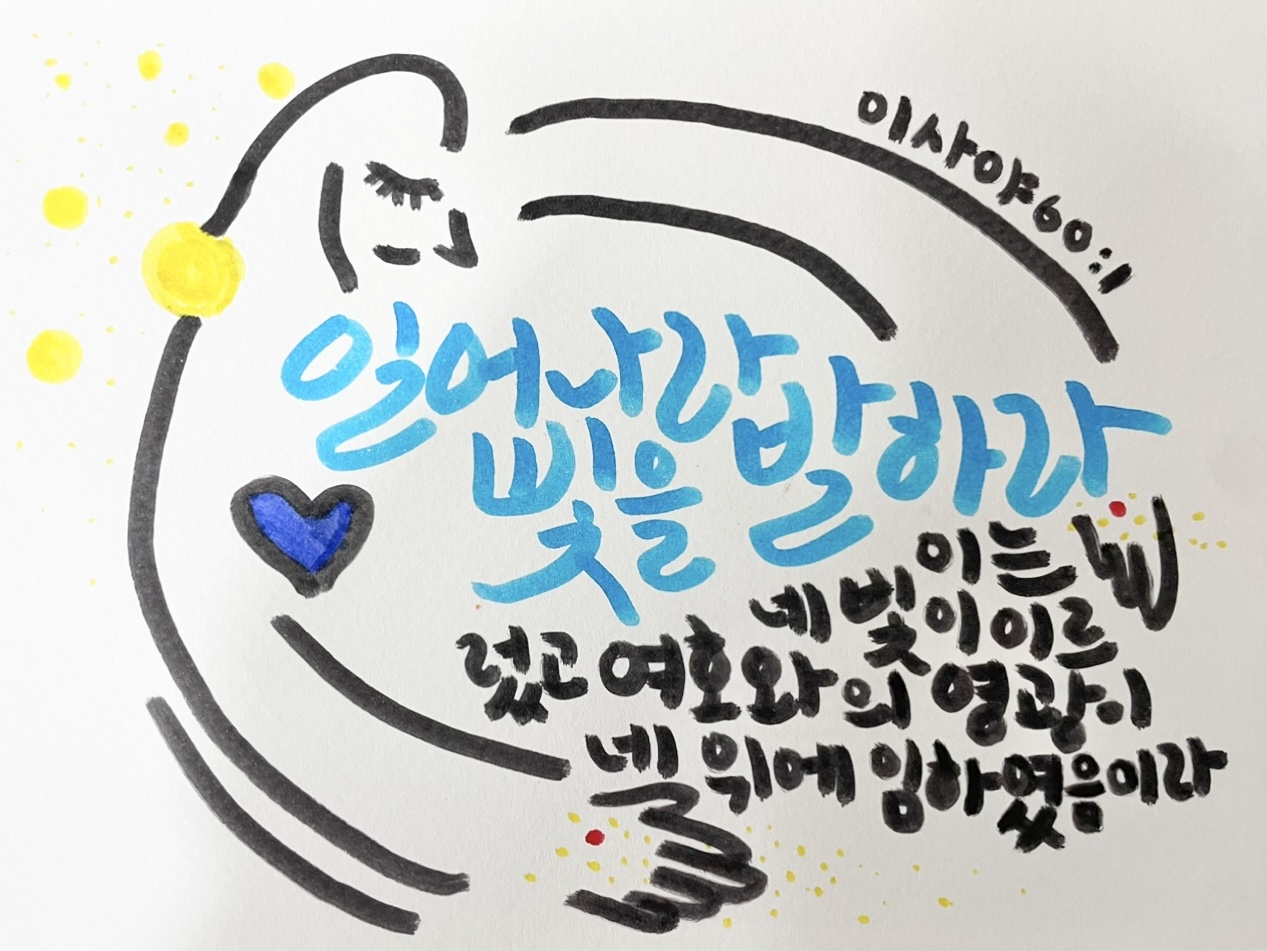 이사야60:1
일어나라
빛을 발하라
이는
네 빛이 이르
렀고 여호와의 영광이
네 위에 임하였음이라